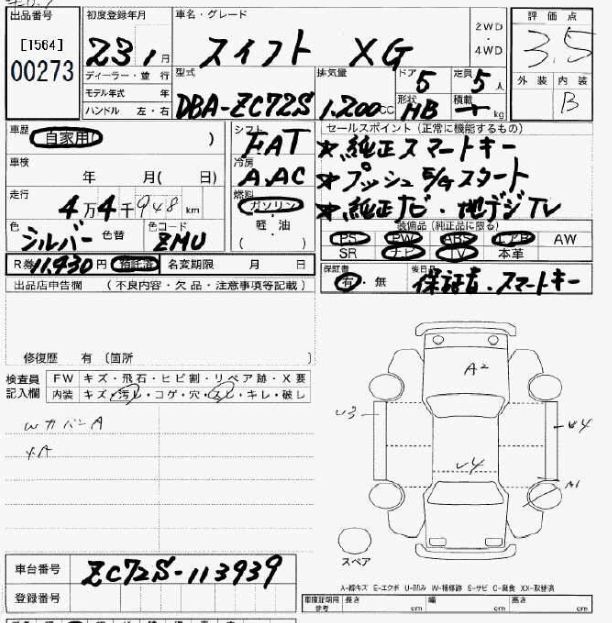 出品番号 初度登録年月 車名・グレード 評価点
[1564] 23 1月 スイフト XG 2WD・4WD 3.5
00273 ディーラー・並行 型式 排気量 ドア 5 定員 5人 外装 内装 B
モデル年式 年 形状 積載
ハンドル 左・右 DBA-ZC72S 1.200cc HB kg
車歴 自家用 ) シフト FAT セールスポイント (正常に機能するもの)
車検 年 月( 日) 冷房 A.AC ★純正スマートキー
走行 4万4千948km 燃料 ガソリン・軽油 ( ) ★プッシュ スタート
★純正ナビ・地デジTV
色 シルバー 色替 色コード ZMU 装備品 (純正品に限る)
PS PW ABS エアB AW
SR ナビ TV 本革
R券 11.430円 預託済 名変期限 月 日 保証書 有・無 後日品 保証書・スマートキー
出品店申告欄 (不良内容・欠品・注意事項等記載)
修復歴 有 〔箇所 〕
検査員記入欄 FW キズ・飛石・ヒビ割・リペア跡・X要
内装 キズ・汚レ・コゲ・穴・スレ・キレ・破レ
A2
U3
U4
A1
スペア
車台番号 ZC72S-113939
A-線キズ E-エクボ U-凹み W-補修跡 S-サビ C-腐食 XX-取替済
登録番号 車庫証明用参考 長さ cm 幅 cm 高さ cm